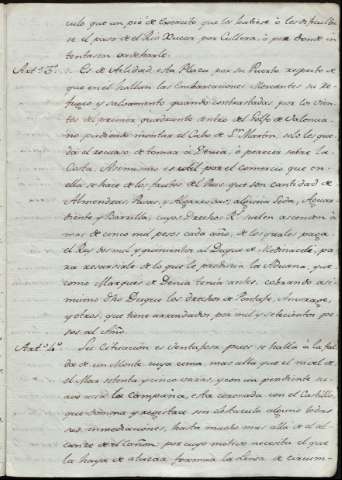 culo que un pie de Exercito que la sitiase ò les dificulta-
se el paso de el Rio Xucar por Cullera, ò por donde in-
tentasen executarle.
Art.º 3.º Es de utilidad esta Plaza por su Puerto respecto de
que en el hallan las Embarcaciones Mercantes su re-
fugio y salvamento quando contrastadas por los vien-
tos del primer quadrante dentro del Golfo de Valencia
no pudiendo montar el Cabo de S.n Martin, solo les que-
da el recurso de tomar à Denia, ò perecer sobre la
Costa. Asimismo es util por el comercio que en
ella se hace de los frutos del Pais que son cantidad de
Almendras, Pasas, y Algarrobas, alguna Seda, Aguar-
diente y Barrilla, cuyos Derechos R.s suelen ascender à
mas de cinco mil pesos cada año, de los quales paga
el Rey dos mil y quinientos al Duque de Medinaceli, pa-
ra recompensarle de lo que le producia la Aduana, que
como Marques de Denia tenia antes, cobrando asi-
mismo dho Duque los derechos de Pontaje, Ancorage,
y otros, que tiene arrendados por mil y setecientos pe-
sos al Año.
Art.º 4.º Su situacion es ventajosa, pues se halla à la fal-
da de un Monte cuya cima, mas alta que el nivel de
el Mar setenta y cinco varas, y con un pendiente
acia la Campaña, esta coronada con el Castillo
que domina y registra sin obstaculo alguno todas
sus inmediaciones, hasta mucho mas allà de el al-
cance de el Cañon, por cuyo motivo necesita el que
la haya de atacar formar la Linea de circum-